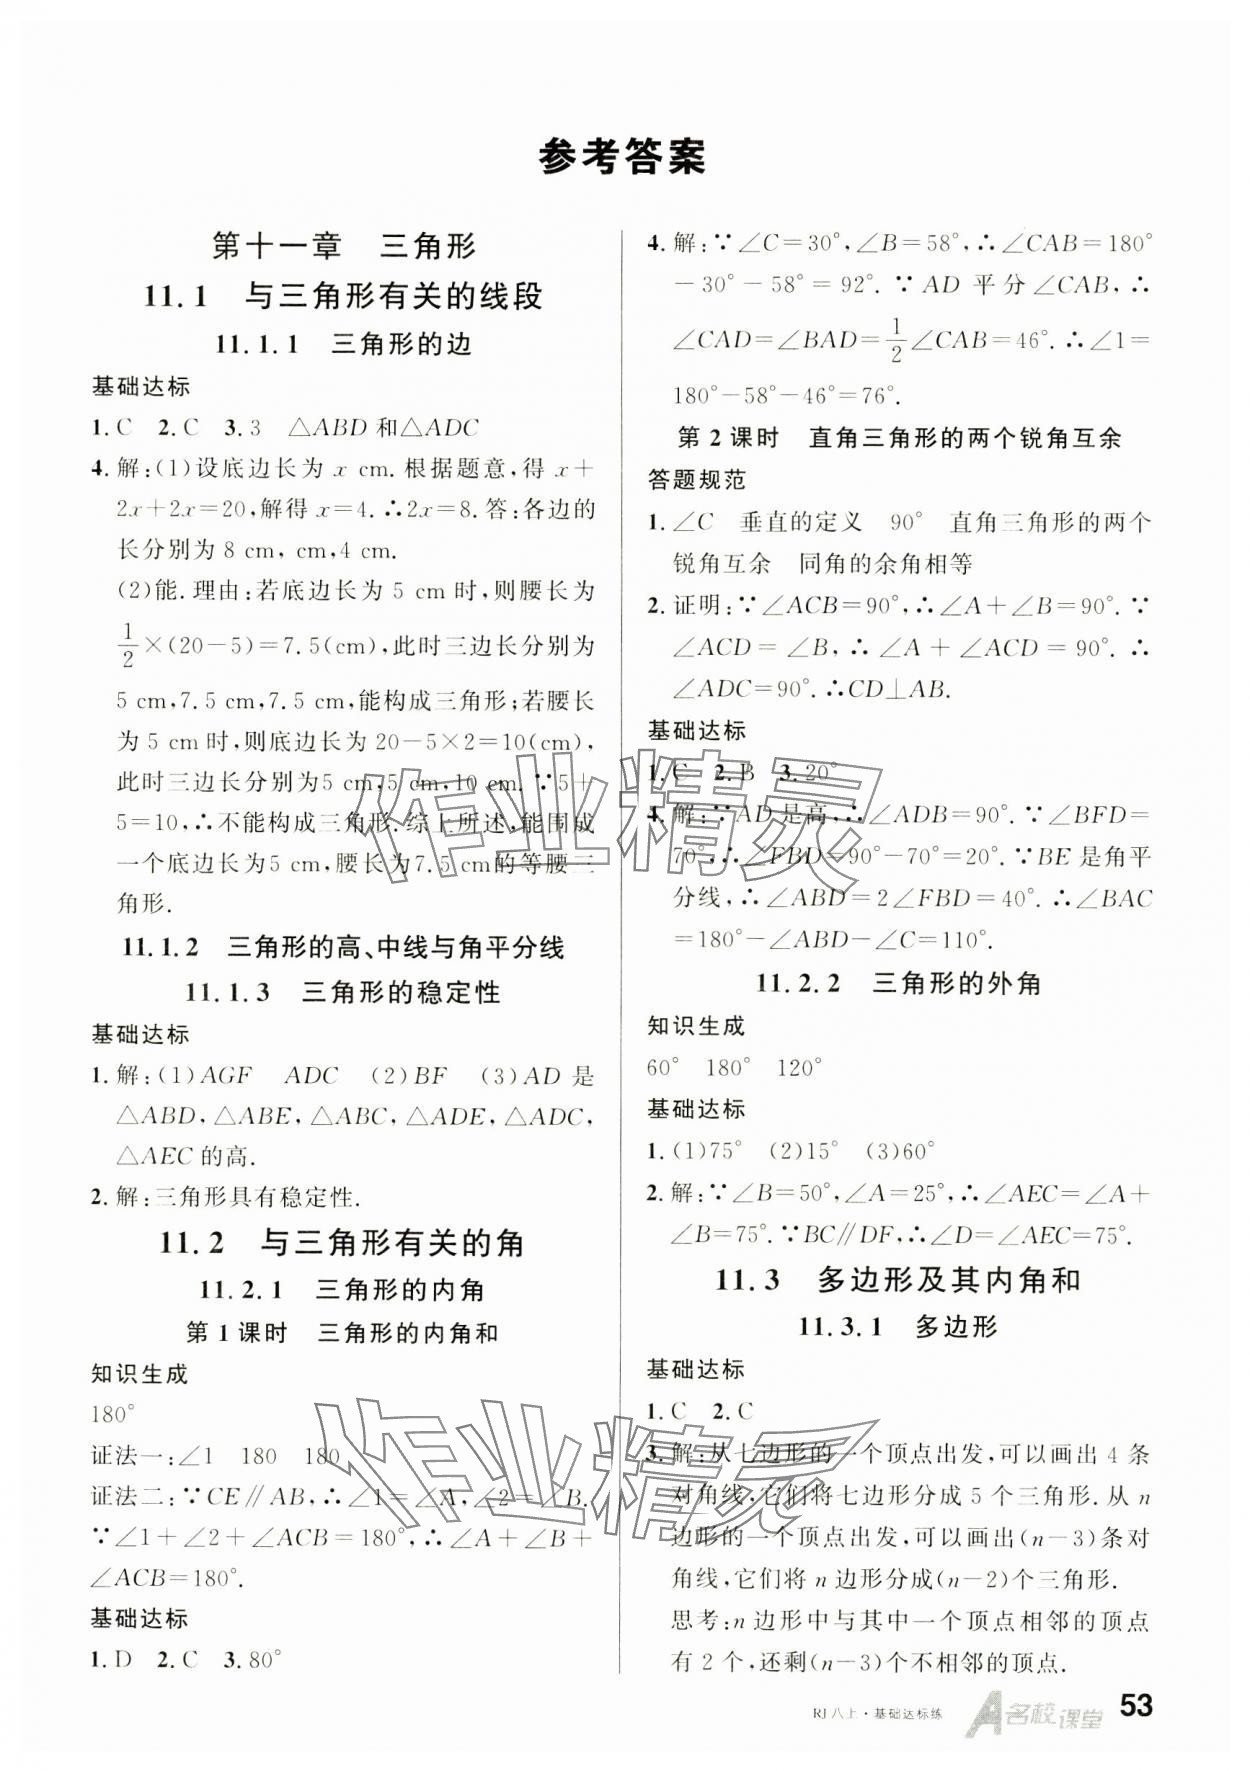 参考答案
第十一章　三角形
11.1　与三角形有关的线段
11.1.1　三角形的边
基础达标
1.C　2.C　3.3　△ABD和△ADC
4.解:(1)设底边长为 x cm.根据题意,得 x+
2x+2x=20,解得 x=4.∴2x=8.答:各边的
长分别为 8 cm, cm,4 cm.
(2)能.理由:若底边长为 5 cm时,则腰长为
1/2×(20-5)=7.5(cm),此时三边长分别为
5 cm,7.5 cm,7.5 cm,能构成三角形;若腰长
为5 cm时,则底边长为20-5×2=10(cm),
此时三边长分别为5 cm,5 cm,10 cm.∵5+
5=10,∴不能构成三角形.综上所述,能围成
一个底边长为5 cm,腰长为7.5 cm的等腰三
角形.
11.1.2　三角形的高、中线与角平分线
11.1.3　三角形的稳定性
基础达标
1.解:(1)AGF　ADC　(2)BF　(3)AD是
△ABD,△ABE,△ABC,△ADE,△ADC,
△AEC的高.
2.解:三角形具有稳定性.
11.2　与三角形有关的角
11.2.1　三角形的内角
第1课时　三角形的内角和
知识生成
180°
证法一:∠1　180　180
证法二:∵CE∥AB,∴∠1=∠A,∠2=∠B.
∵∠1+∠2+∠ACB=180°,∴∠A+∠B+
∠ACB=180°.
基础达标
1.D　2.C　3.80°
4.解:∵∠C=30°,∠B=58°,∴∠CAB=180°
-30°-58°=92°.∵AD平分∠CAB,∴
∠CAD=∠BAD=1/2∠CAB=46°.∴∠1=
180°-58°-46°=76°.
第2课时　直角三角形的两个锐角互余
答题规范
1.∠C　垂直的定义　90°　直角三角形的两个
锐角互余　同角的余角相等
2.证明:∵∠ACB=90°,∴∠A+∠B=90°.∵
∠ACD=∠B,∴∠A+∠ACD=90°.∴
∠ADC=90°.∴CD⊥AB.
基础达标
1.C　2.B　3.20°
4.解:∵AD是高,∴∠ADB=90°.∵∠BFD=
70°,∴∠FBD=90°-70°=20°.∵BE是角平
分线,∴∠ABD=2∠FBD=40°.∴∠BAC
=180°-∠ABD-∠C=110°.
11.2.2　三角形的外角
知识生成
60°　180°　120°
基础达标
1.(1)75°　(2)15°　(3)60°
2.解:∵∠B=50°,∠A=25°,∴∠AEC=∠A+
∠B=75°.∵BC∥DF,∴∠D=∠AEC=75°.
11.3　多边形及其内角和
11.3.1　多边形
基础达标
1.C　2.C
3.解:从七边形的一个顶点出发,可以画出4条
对角线,它们将七边形分成5个三角形.从n
边形的一个顶点出发,可以画出(n-3)条对
角线,它们将n边形分成(n-2)个三角形.
思考:n边形中与其中一个顶点相邻的顶点
有2个,还剩(n-3)个不相邻的顶点.
RJ八上·基础达标练
A名校课堂
53
作业精灵
作业精灵